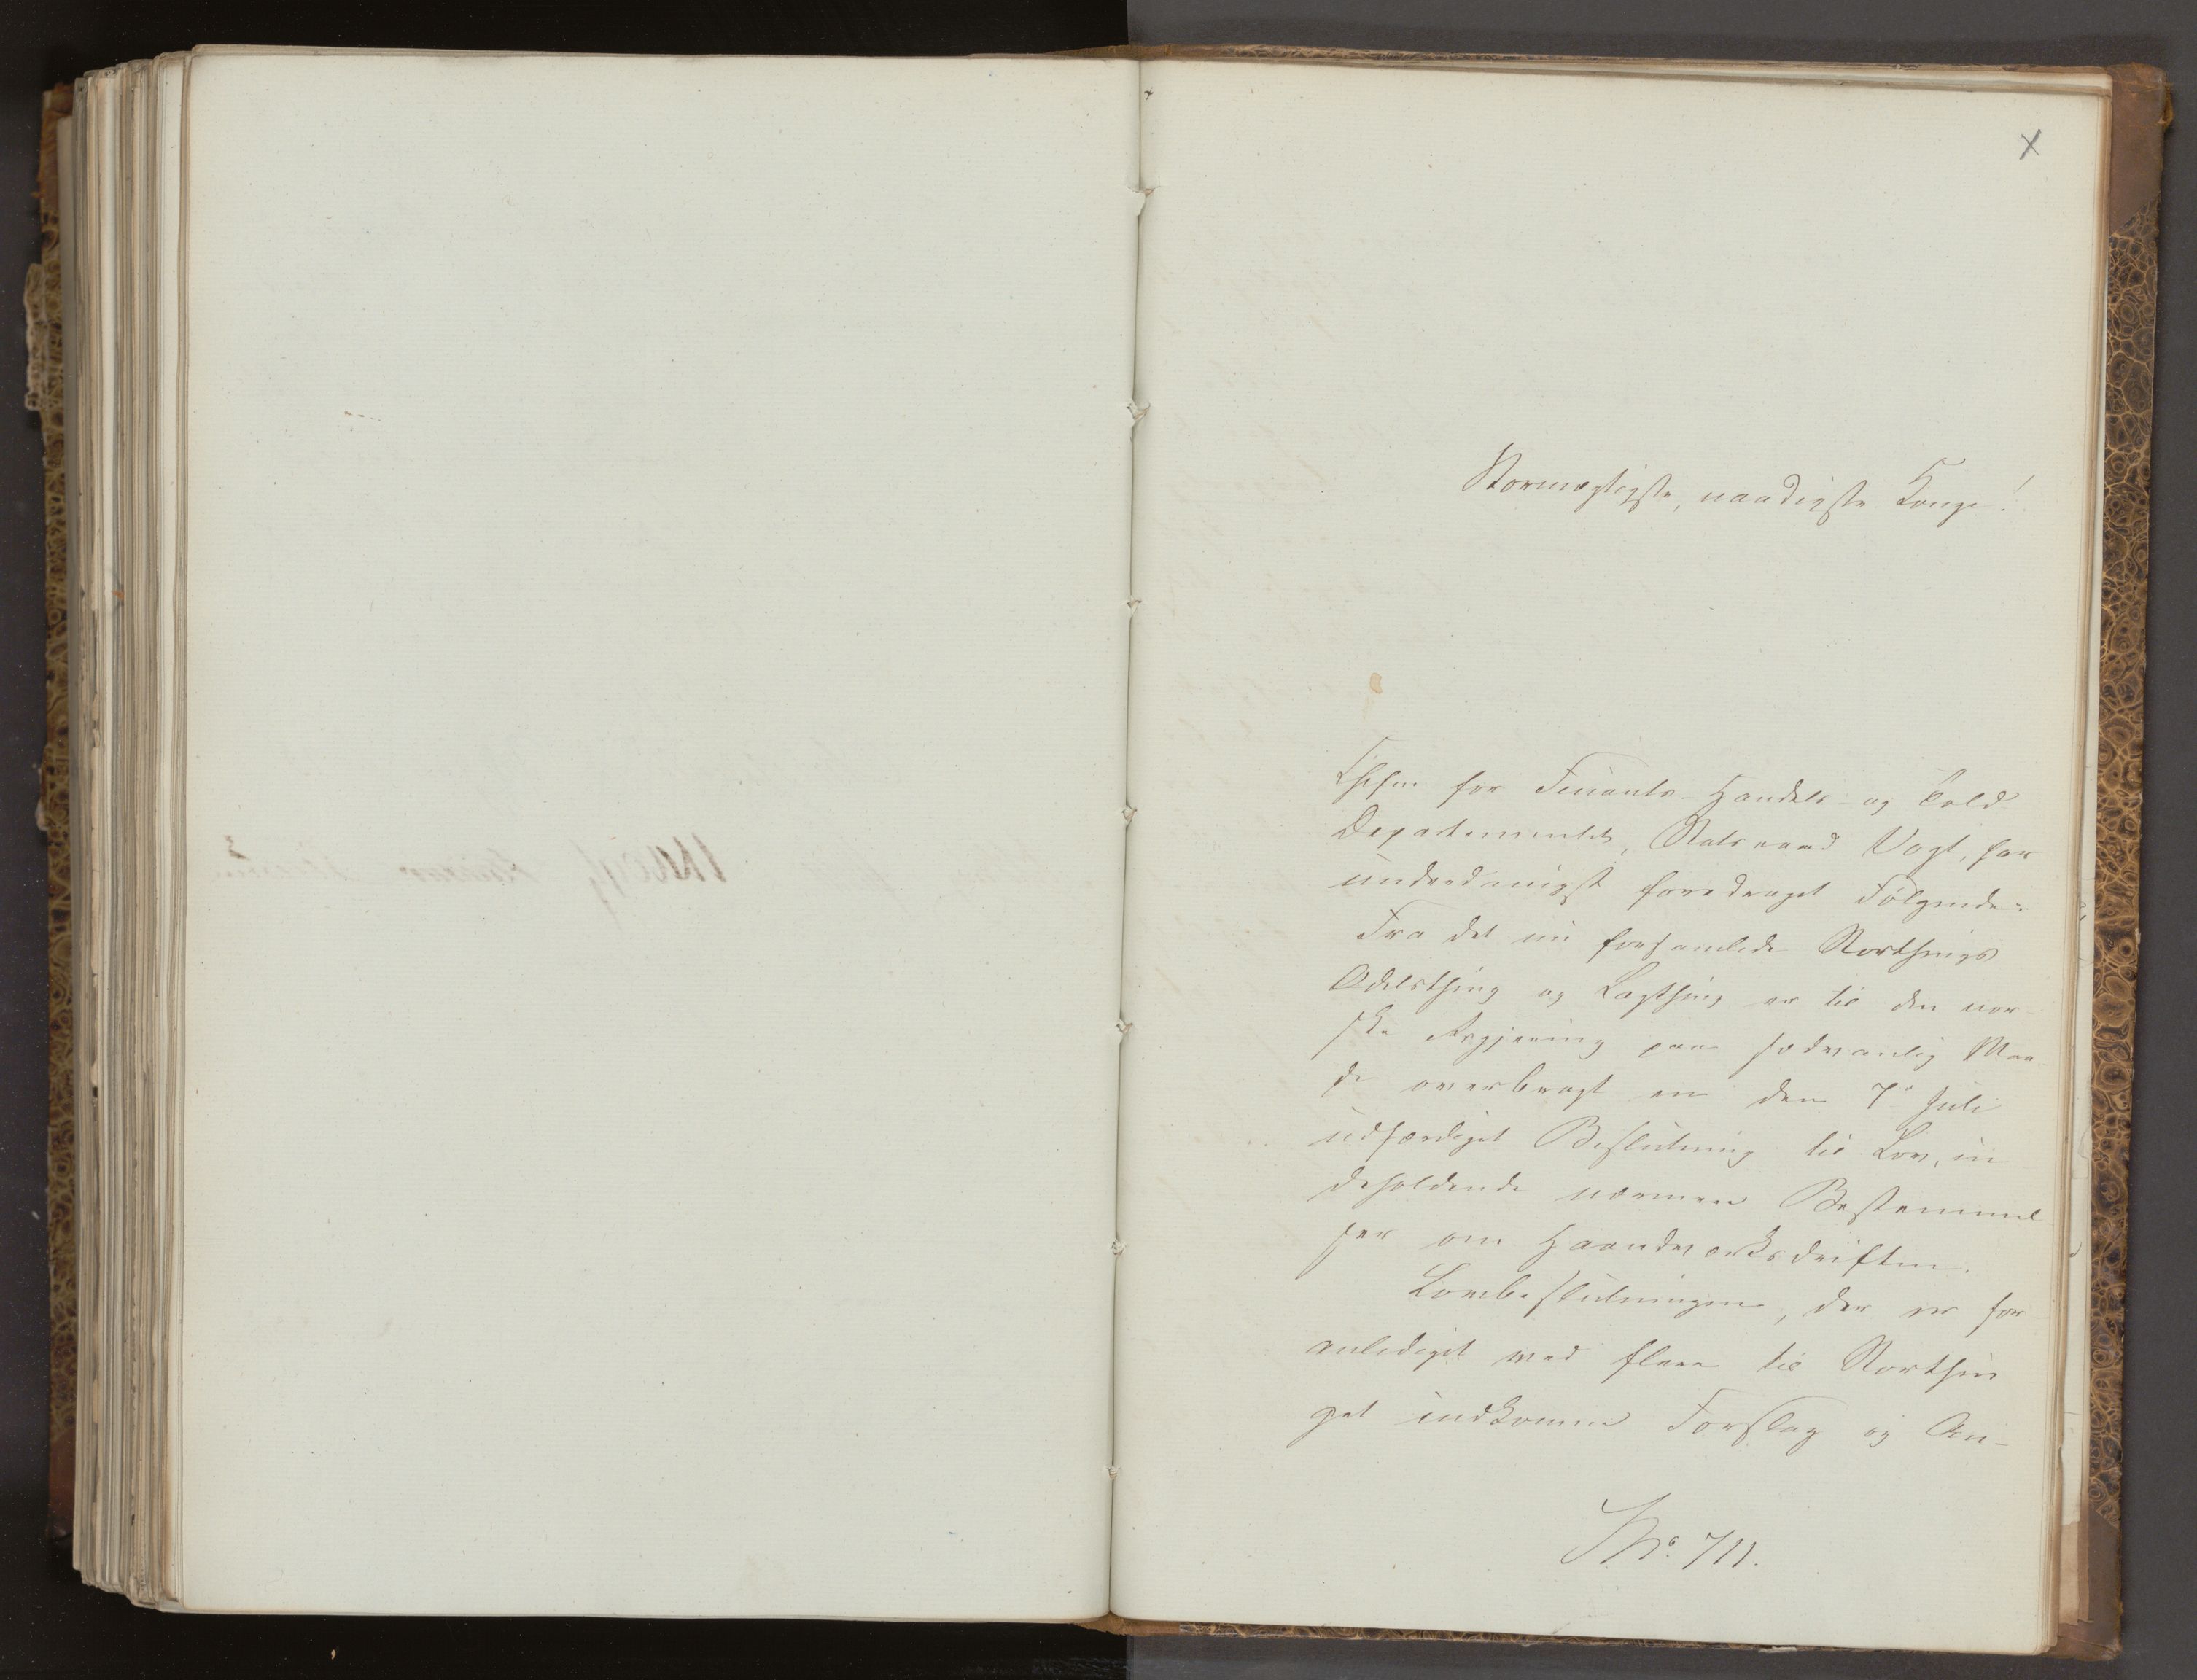 Stormægtigste, naadigste Konge!
Chefen for Finants- Handels- og Told
Departementet, Statsraad Vogt, har
underdanigst foredraget Følgende:
Fra det nu forsamlede Storthings
Odelsthing og Lagthing er til den nor-
ske Regjering paa sædvanlig Maa
de overbragt en den 7de Juli
udfærdiget Beslutning til Lov, in
deholdende nærmere Bestemmel
ser om Haandværksdriften.
Lovbeslutningen, der er for-
anlediget ved flere til Storthin
get indkomne Forslag og An-
No. 711.